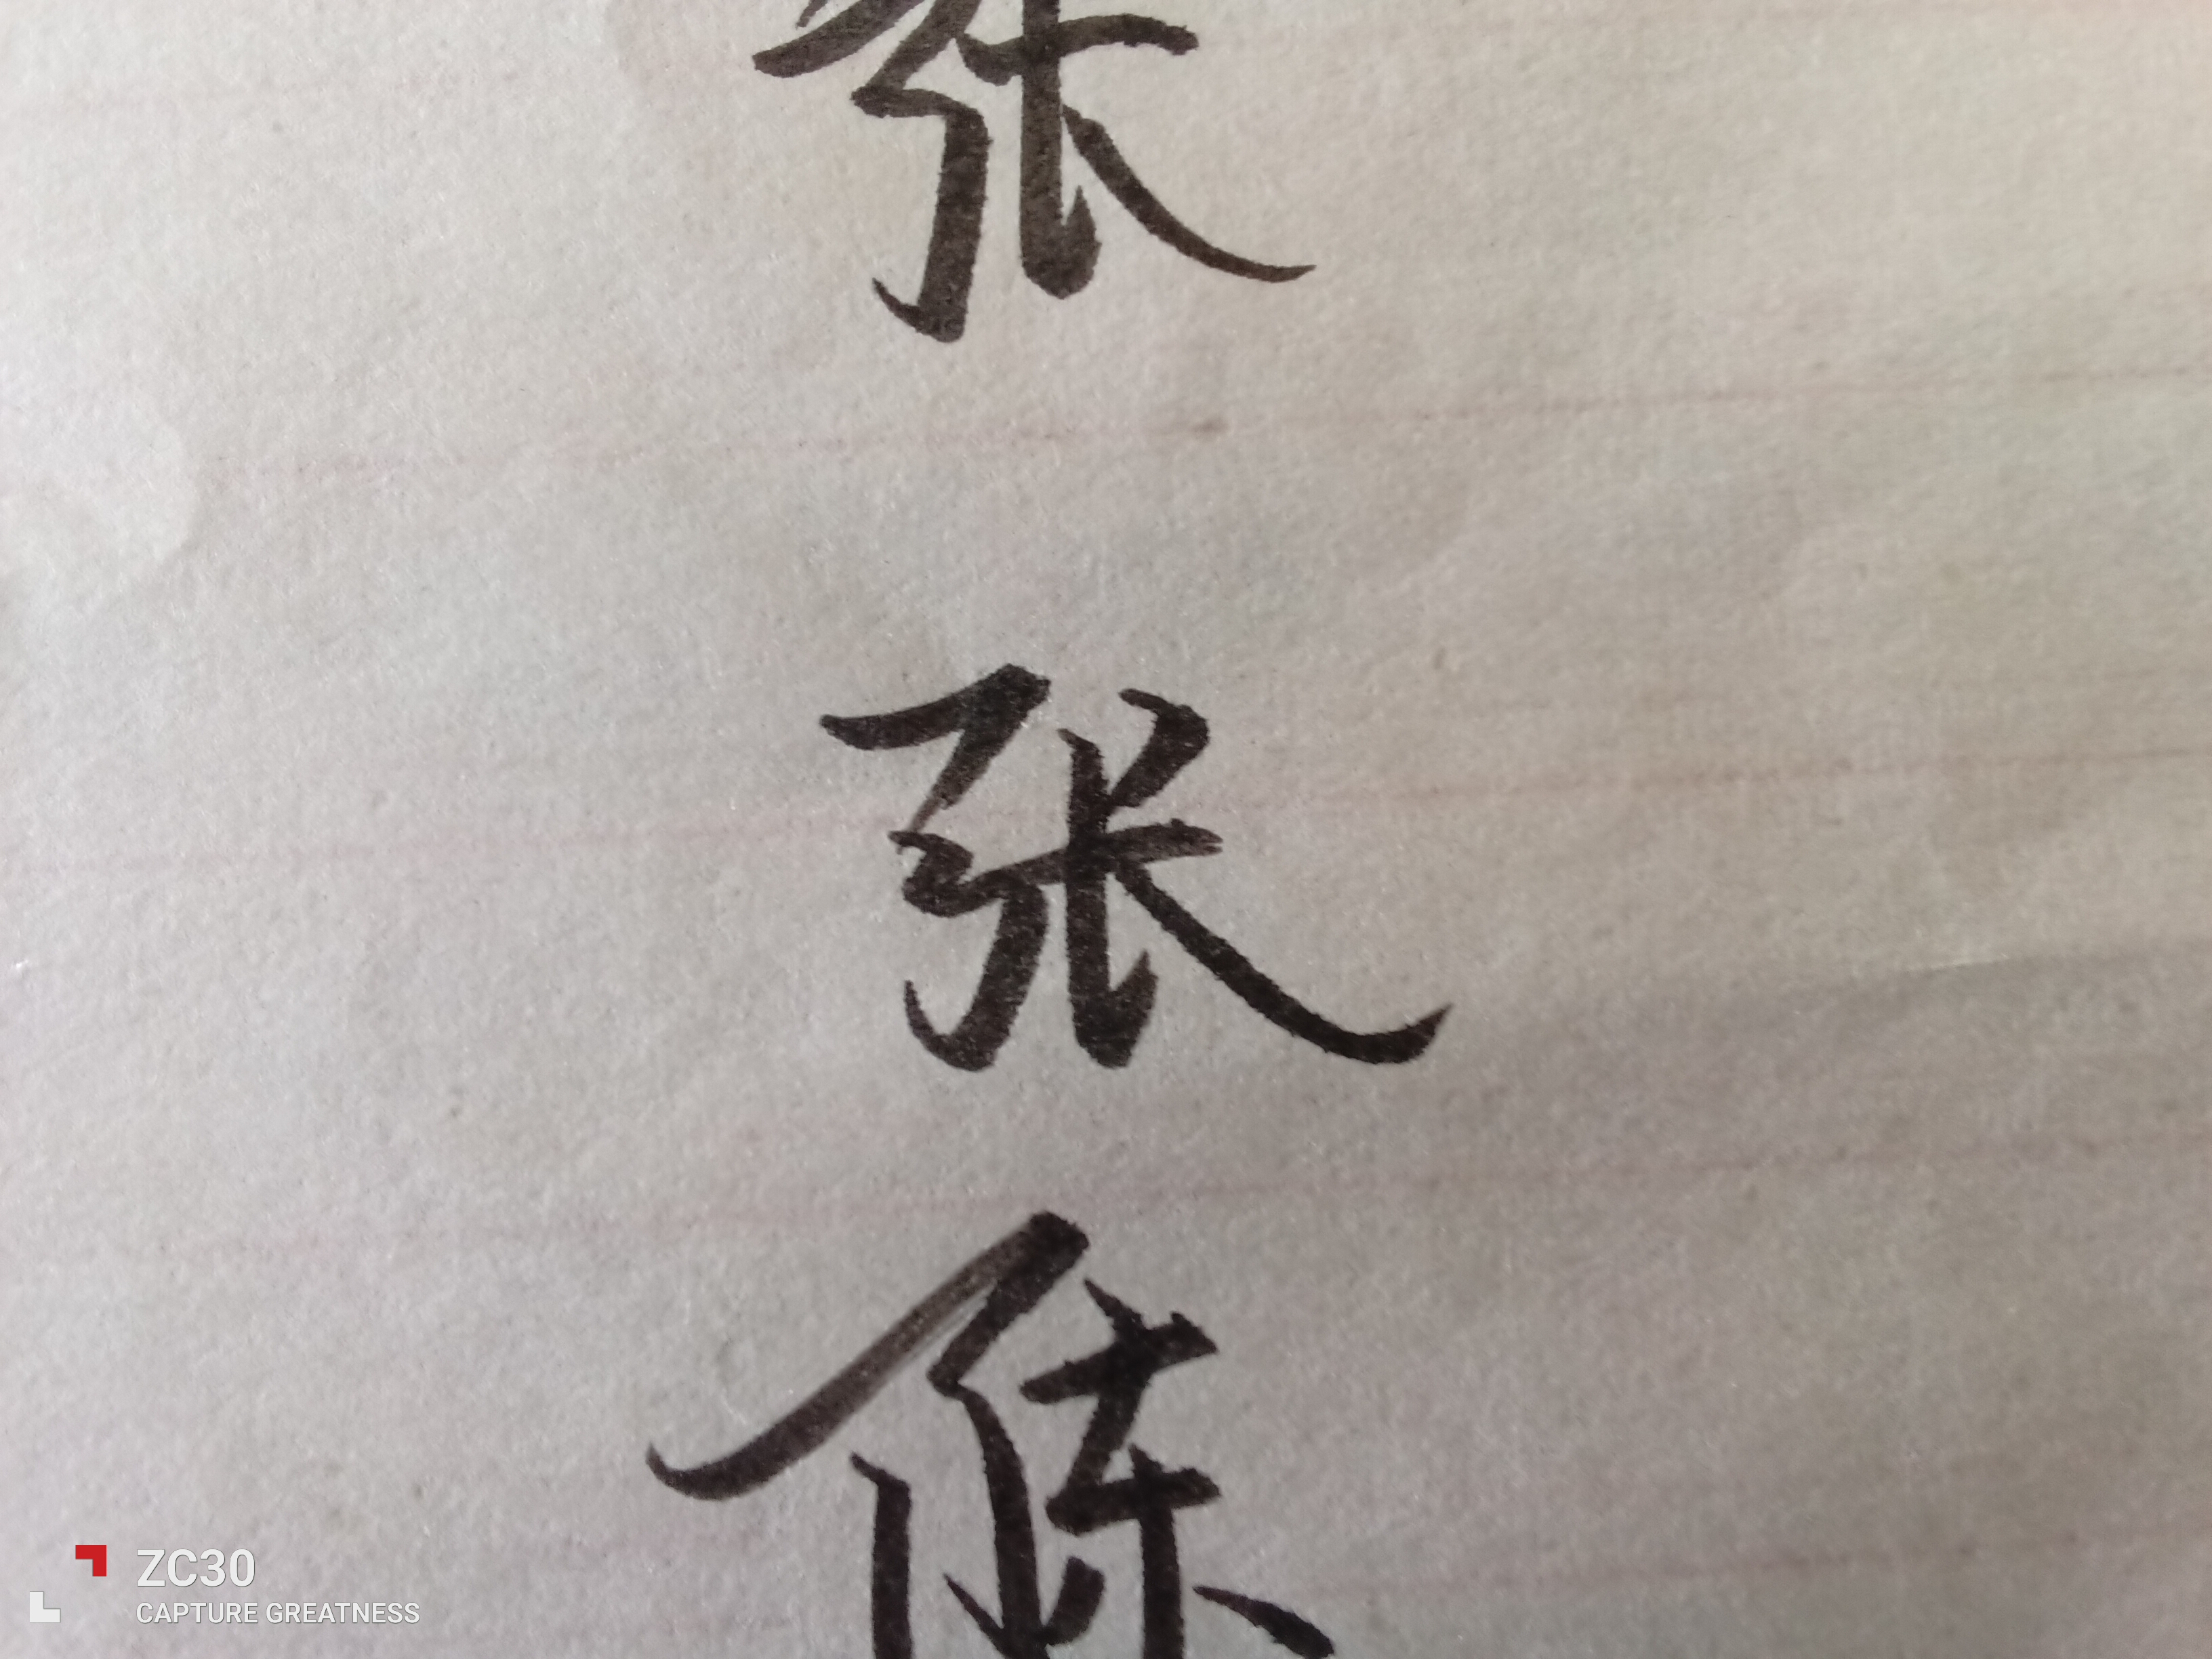 张
张
ZC30
CAPTURE GREATNESS